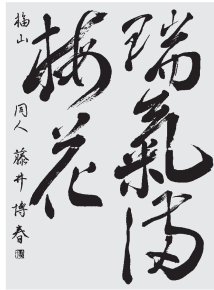 瑞氣満
梅花
福山　同人　藤井博春